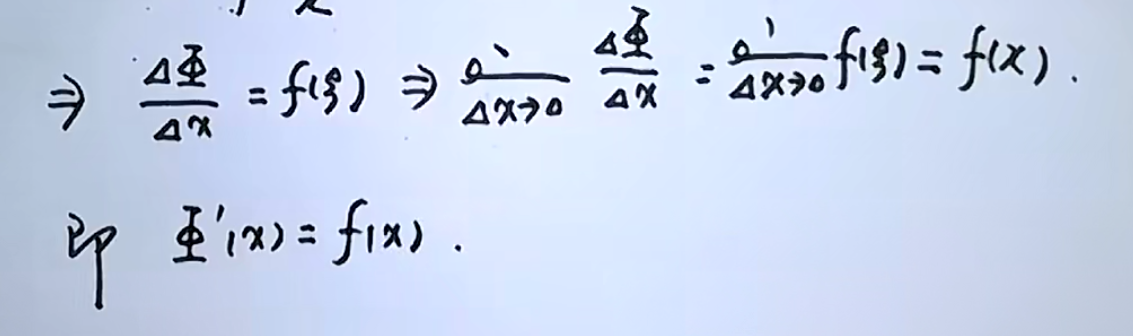 ⇒ ΔΦ/Δx = f(ξ) ⇒ lim_{Δx→0} ΔΦ/Δx = lim_{Δx→0} f(ξ) = f(x).
即 Φ'(x) = f(x).